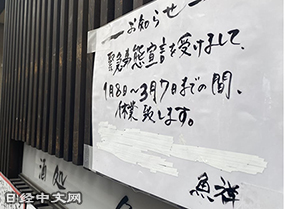 お知らせ
緊急事態宣言を受けまして、
1月8日~3月7日までの間、
休業致します。
魚祥
酒処
日经中文网